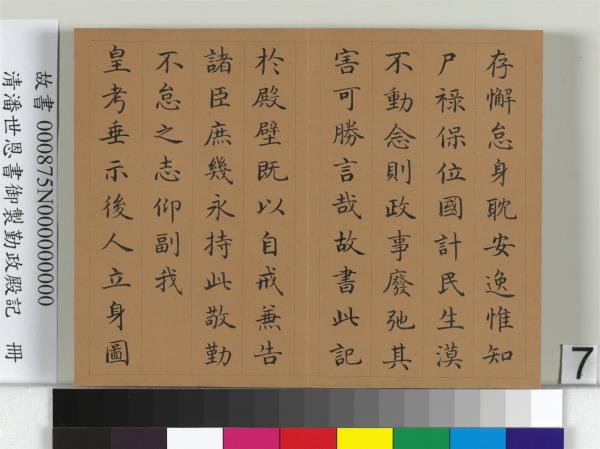 存懈怠身耽安逸惟知
尸祿保位國計民生漠
不動念則政事廢弛其
害可勝言哉故書此記
於殿壁既以自戒兼告
諸臣庶幾永持此敬勤
不怠之志仰副我
皇考垂示後人立身圖
故書 000875N000000000
清潘世恩書御製勤政殿記 冊
7